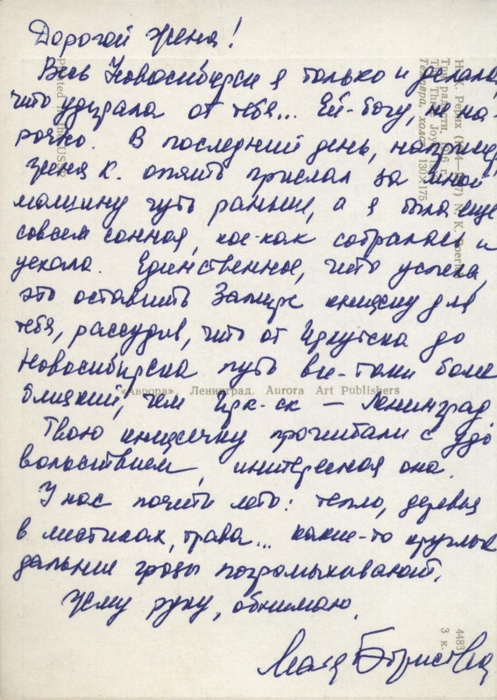 Дорогой Женя!
Весь Новосибирск я только и делала,
что удирала от тебя... Ей-богу, не на-
рочно. В последний день, например,
Женя К. опять прислал за мной
машину чуть раньше, а я была еще
совсем сонная, кое-как собралась и
уехала. Единственное, что успела,
это оставить Замире книжку для
тебя, рассудив, что от Иркутска до
Новосибирска путь все-таки более
близкий, чем Ирк-ск — Ленинград.
Твою книжечку прочитали с удо
вольствием, интересная она.
У нас почти лето: тепло, деревья
в листиках, трава... какие-то круглые
дальние грозы погромыхивают.
Жму руку, обнимаю.
«Аврора». Ленинград. Aurora Art Publishers
4483
3 к.